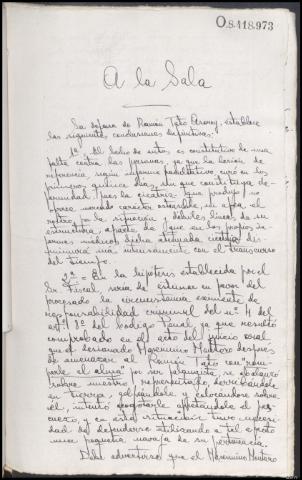 O.8.118.973
A la Sala
La defensa de Ramón Tato establece
las siguientes conclusiones definitivas:
1ª El hecho de autos es constitutivo de una
falta contra las personas, ya que la lesión de
referencia, según informe facultativo curó en los
primeros quince dias, sin que constituya de-
formidad pues la cicatriz que produjo no
ofrece marcado carácter ostensible ni afea el
rostro por la situación y débiles lineas de su
estructura, aparte de que en los propios in-
formes médicos dicha cicatriz dis-
minuirá con el transcurso
del tiempo.
2ª = En la hipótesis establecida por el
Sr Fiscal sería de estimar en favor del
procesado la circunstancia eximente de
responsabilidad criminal del nº 4 del
artº 1º del Codigo Penal ya que resultó
comprobado en el acto del juicio oral
que el lesionado Maximino Montoro despues
de amenazar al Ramón Tato con "rom-
perle el alma" por ser falangista se abalanzó
sobre nuestro representado, derribandole
en tierra, golpeandole y colocandose sobre
él, intentó ahogarle apretandole el pes-
cuezo, y en esta situación tuvo nece-
sidad de defenderse utilizando a tal efecto
una pequeña navaja de su pertenencia.
Debe advertirse que el Maximino Montoro